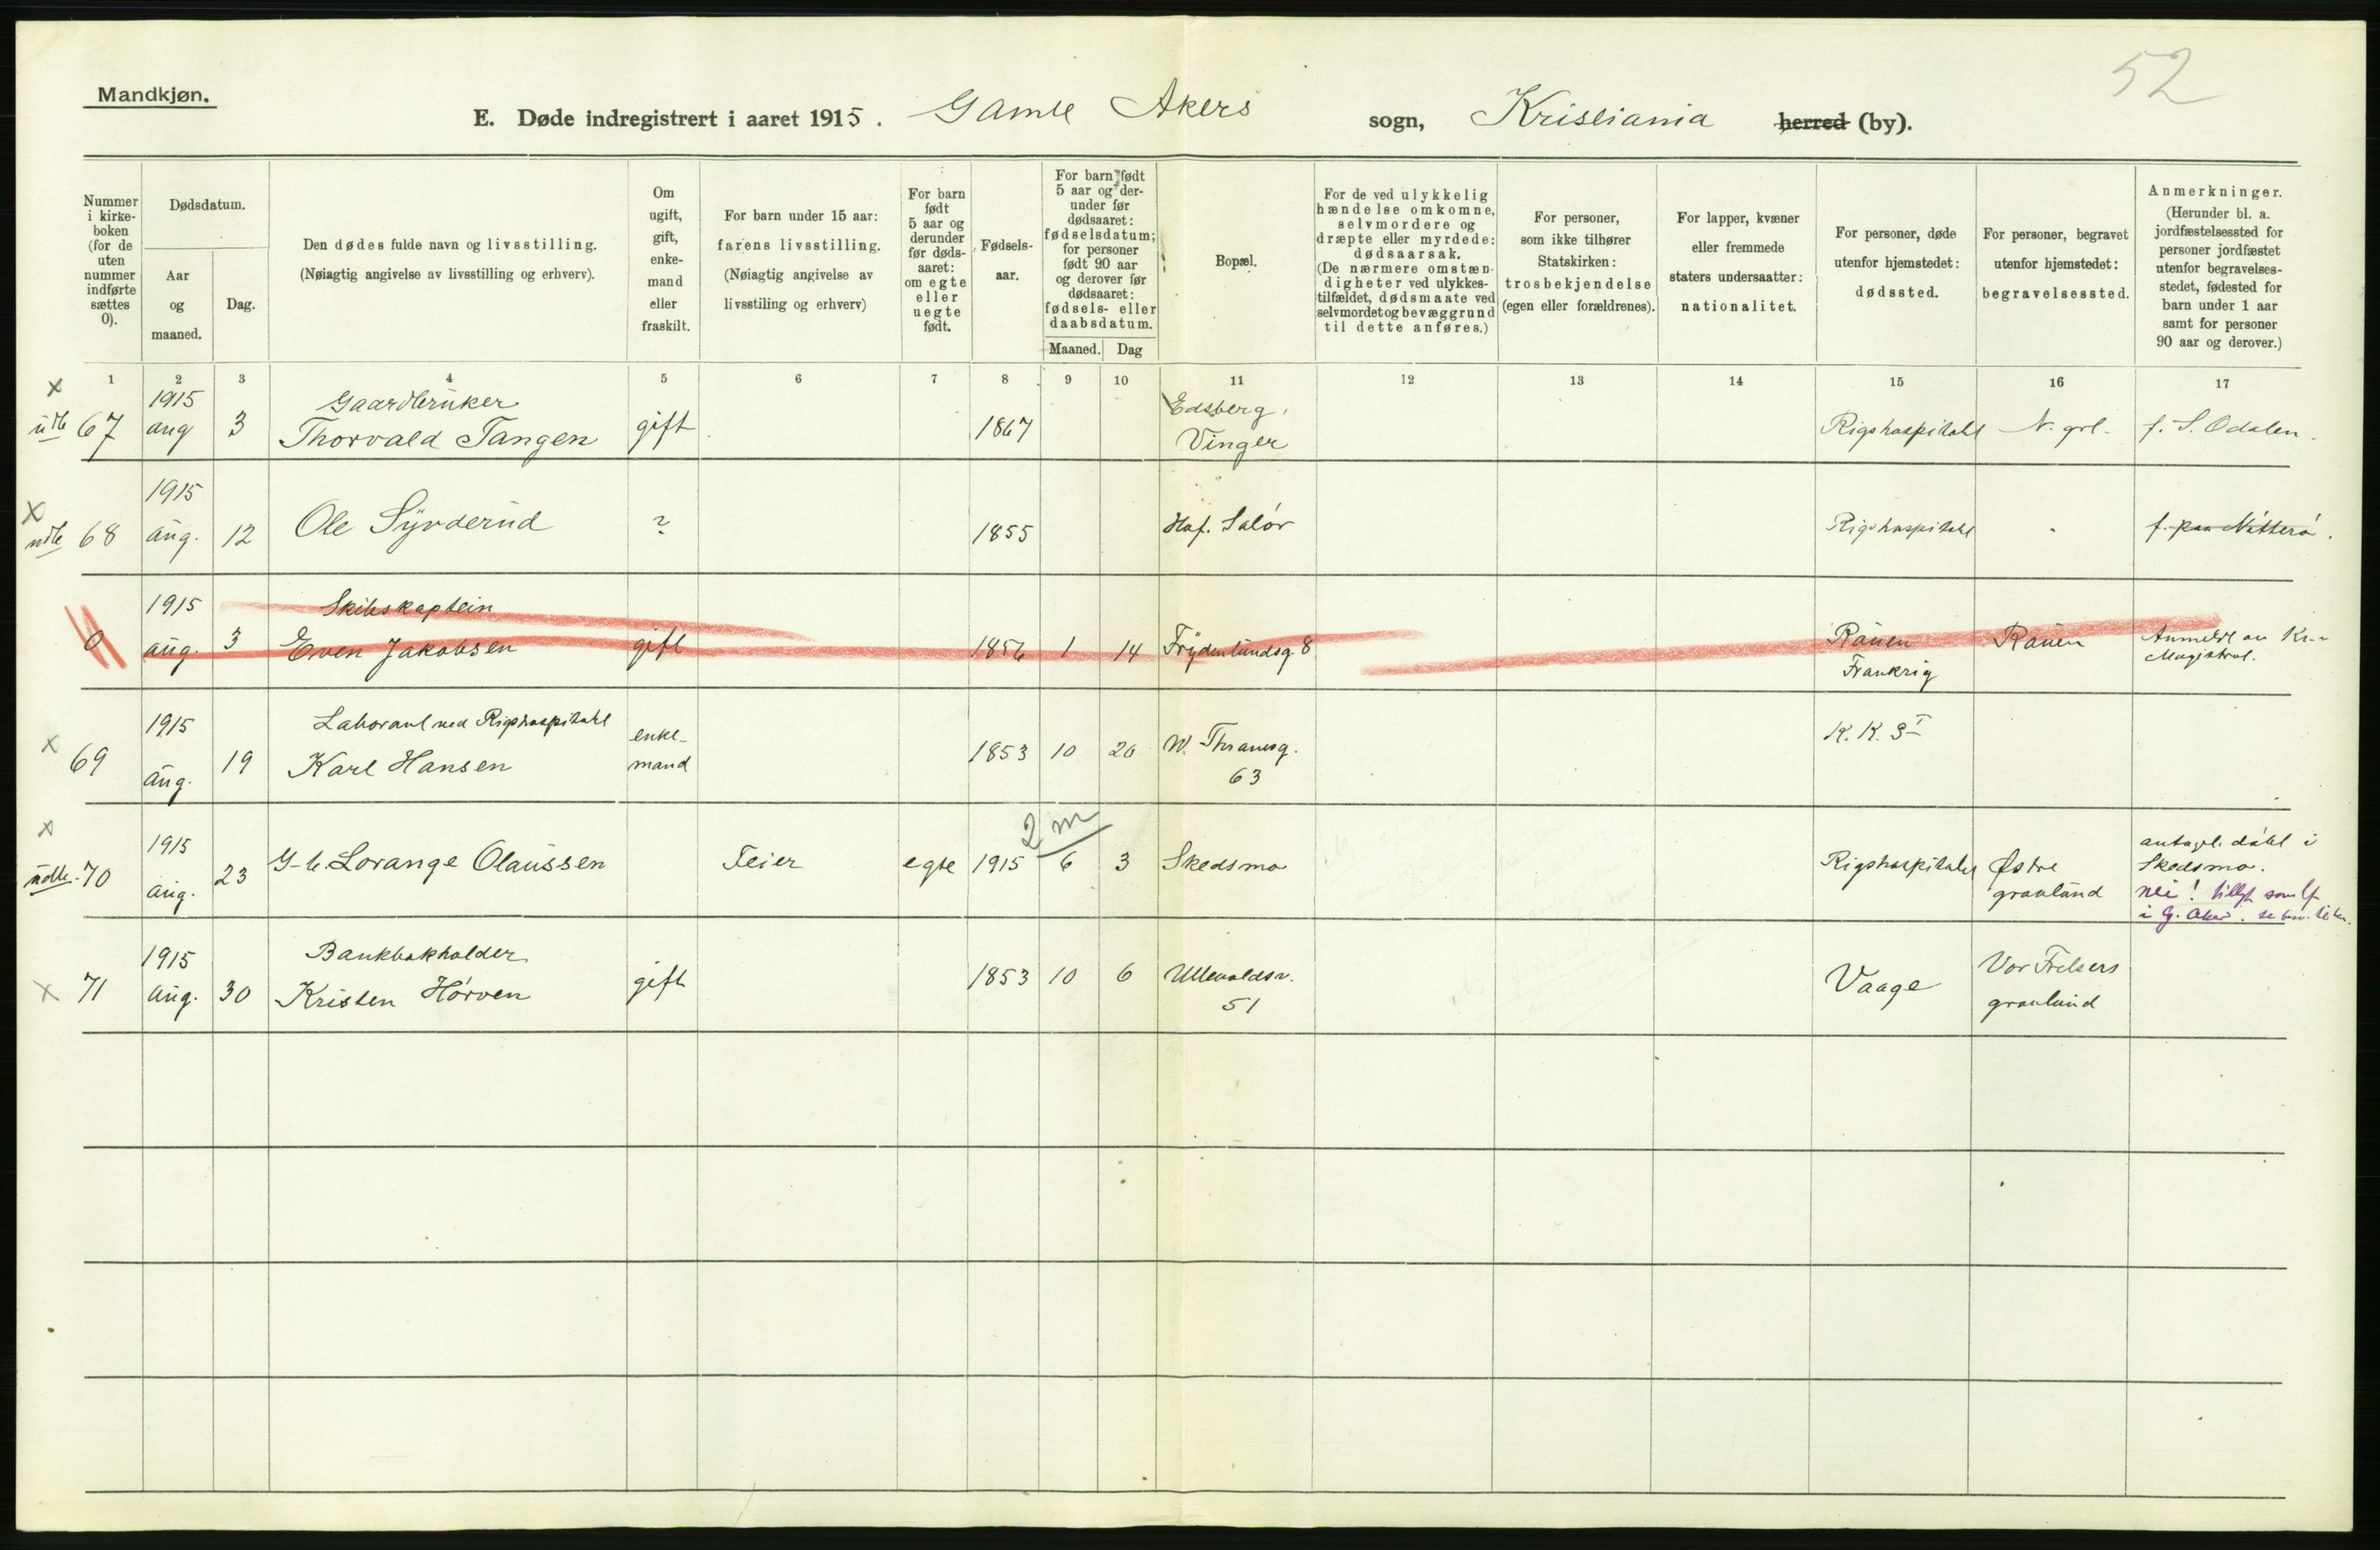 52
Mandkjøn.
E. Døde indregistrert i aaret 1915. Gamle Akers sogn, Kristiania herred (by).
Nummer i kirke-boken (for de uten nummer indførte sættes 0).
Dødsdatum.
Aar og maaned.
Dag.
Den dødes fulde navn og livsstilling.
(Nøiagtig angivelse av livsstilling og erhverv).
Om ugift, gift, enke-mand eller fraskilt.
For barn under 15 aar: farens livsstilling.
(Nøiagtig angivelse av livsstiling og erhverv)
For barn født 5 aar og derunder før døds-aaret: om egte eller uegte født.
Fødsels-aar.
For barn født 5 aar og der-under før dødsaaret: fødselsdatum; for personer født 90 aar og derover før dødsaaret: fødsels- eller daabsdatum.
Maaned. Dag
Bopæl.
For de ved ulykkelig hændelse omkomne, selvmordere og dræpte eller myrdede: dødsaarsak.
(De nærmere omstæn-digheter ved ulykkes-tilfældet, dødsmaate ved selvmordet og bevæggrund til dette anføres.)
For personer, som ikke tilhører Statskirken: trosbekjendelse (egen eller forældrenes).
For lapper, kvæner eller fremmede staters undersaatter: nationalitet.
For personer, døde utenfor hjemstedet: dødssted.
For personer, begravet utenfor hjemstedet: begravelsessted.
Anmerkninger.
(Herunder bl. a. jordfæstelsessted for personer jordfæstet utenfor begravelses-stedet, fødested for barn under 1 aar samt for personer 90 aar og derover.)
1 2 3 4 5 6 7 8 9 10 11 12 13 14 15 16 17
x
1915 Gaardbruker Edsberg,
67 aug 3 Thorvald Tangen gift 1867 Vinger Rigshospitalet N. grl. f. S. Odalen.
x
1915
68 aug. 12 Ole Syvderud ? 1855 Hof. Solör Rigshospitalet f. paa Nötterö.
1915 Skibskaptein
0 aug. 3 Even Jakobsen gift 1856 1 14 Frydenlundsg. 8 Rouen Rouen Anmeldt av Kr.-
Frankrig Magistrat.
1915 Laborant ved Rigshospitalet enke- K. K. 3 I
x 69 aug. 19 Karl Hansen mand 1853 10 20 W. Thranesg.
63
x
2 m
1915 antagel. döbt i
70 aug. 23 G-b. Lorange Olaussen Feier egte 1915 6 3 Skedsmo Rigshospitalet Østre Skedsmo.
gravlund nei!
i G. Aker.
1915 Bankbokholder Vor Frelsers
x 71 aug. 30 Kristen Hörven gift 1853 10 6 Ullevoldsv. Vaage gravlund
51